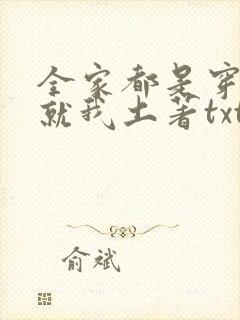 全家都是穿
就我土著txt
俞斌